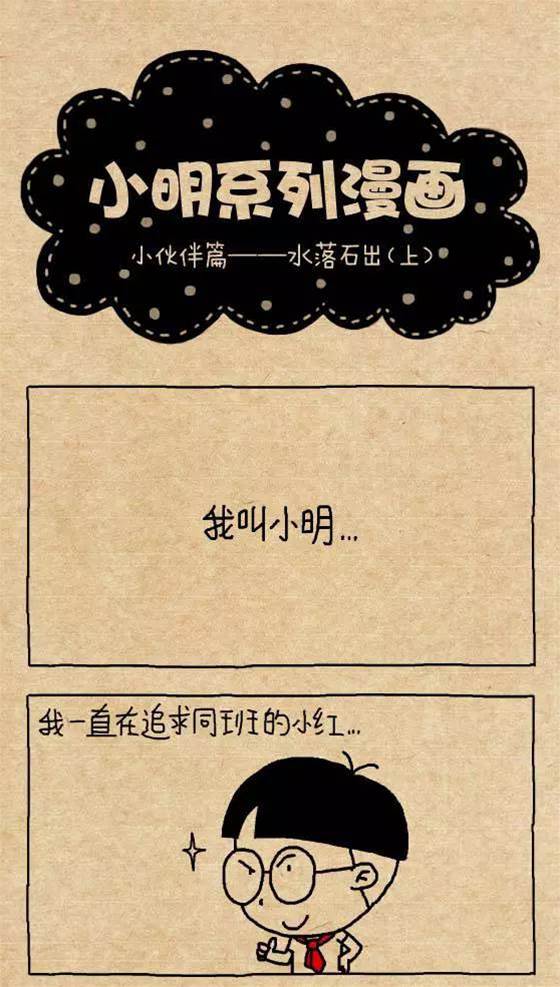 小明系列漫画
小伙伴篇——水落石出(上)
我叫小明...
我一直在追求同班的小红...